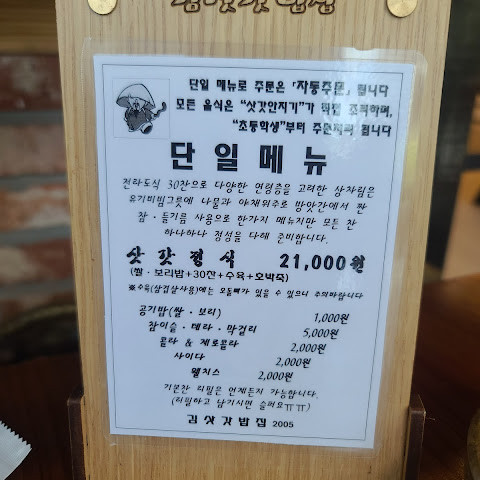 김삿갓밥집
단일 메뉴로 주문은 "자동주문" 됩니다
모든 음식은 "삿갓안지기"가 직접 조리하며,
"초등학생"부터 주문처리 됩니다
단일메뉴
전라도식 30찬으로 다양한 연령층을 고려한 상차림은
유기비빔그릇에 나물과 야채위주로 방앗간에서 짠
참·들기름 사용으로 한가지 메뉴지만 모든 찬
하나하나 정성을 다해 준비합니다.
삿갓정식 21,000원
(쌀·보리밥+30찬+수육+호박죽)
※수육(삼겹살사용)에는 오돌뼈가 있을 수 있으니 주의바랍니다
공기밥(쌀·보리) 1,000원
참이슬·테라·막걸리 5,000원
콜라 & 제로콜라 2,000원
사이다 2,000원
웰치스 2,000원
기본찬 리필은 언제든지 가능합니다.
(리필하고 남기시면 슬러요ㅠㅠ)
김삿갓밥집 2005